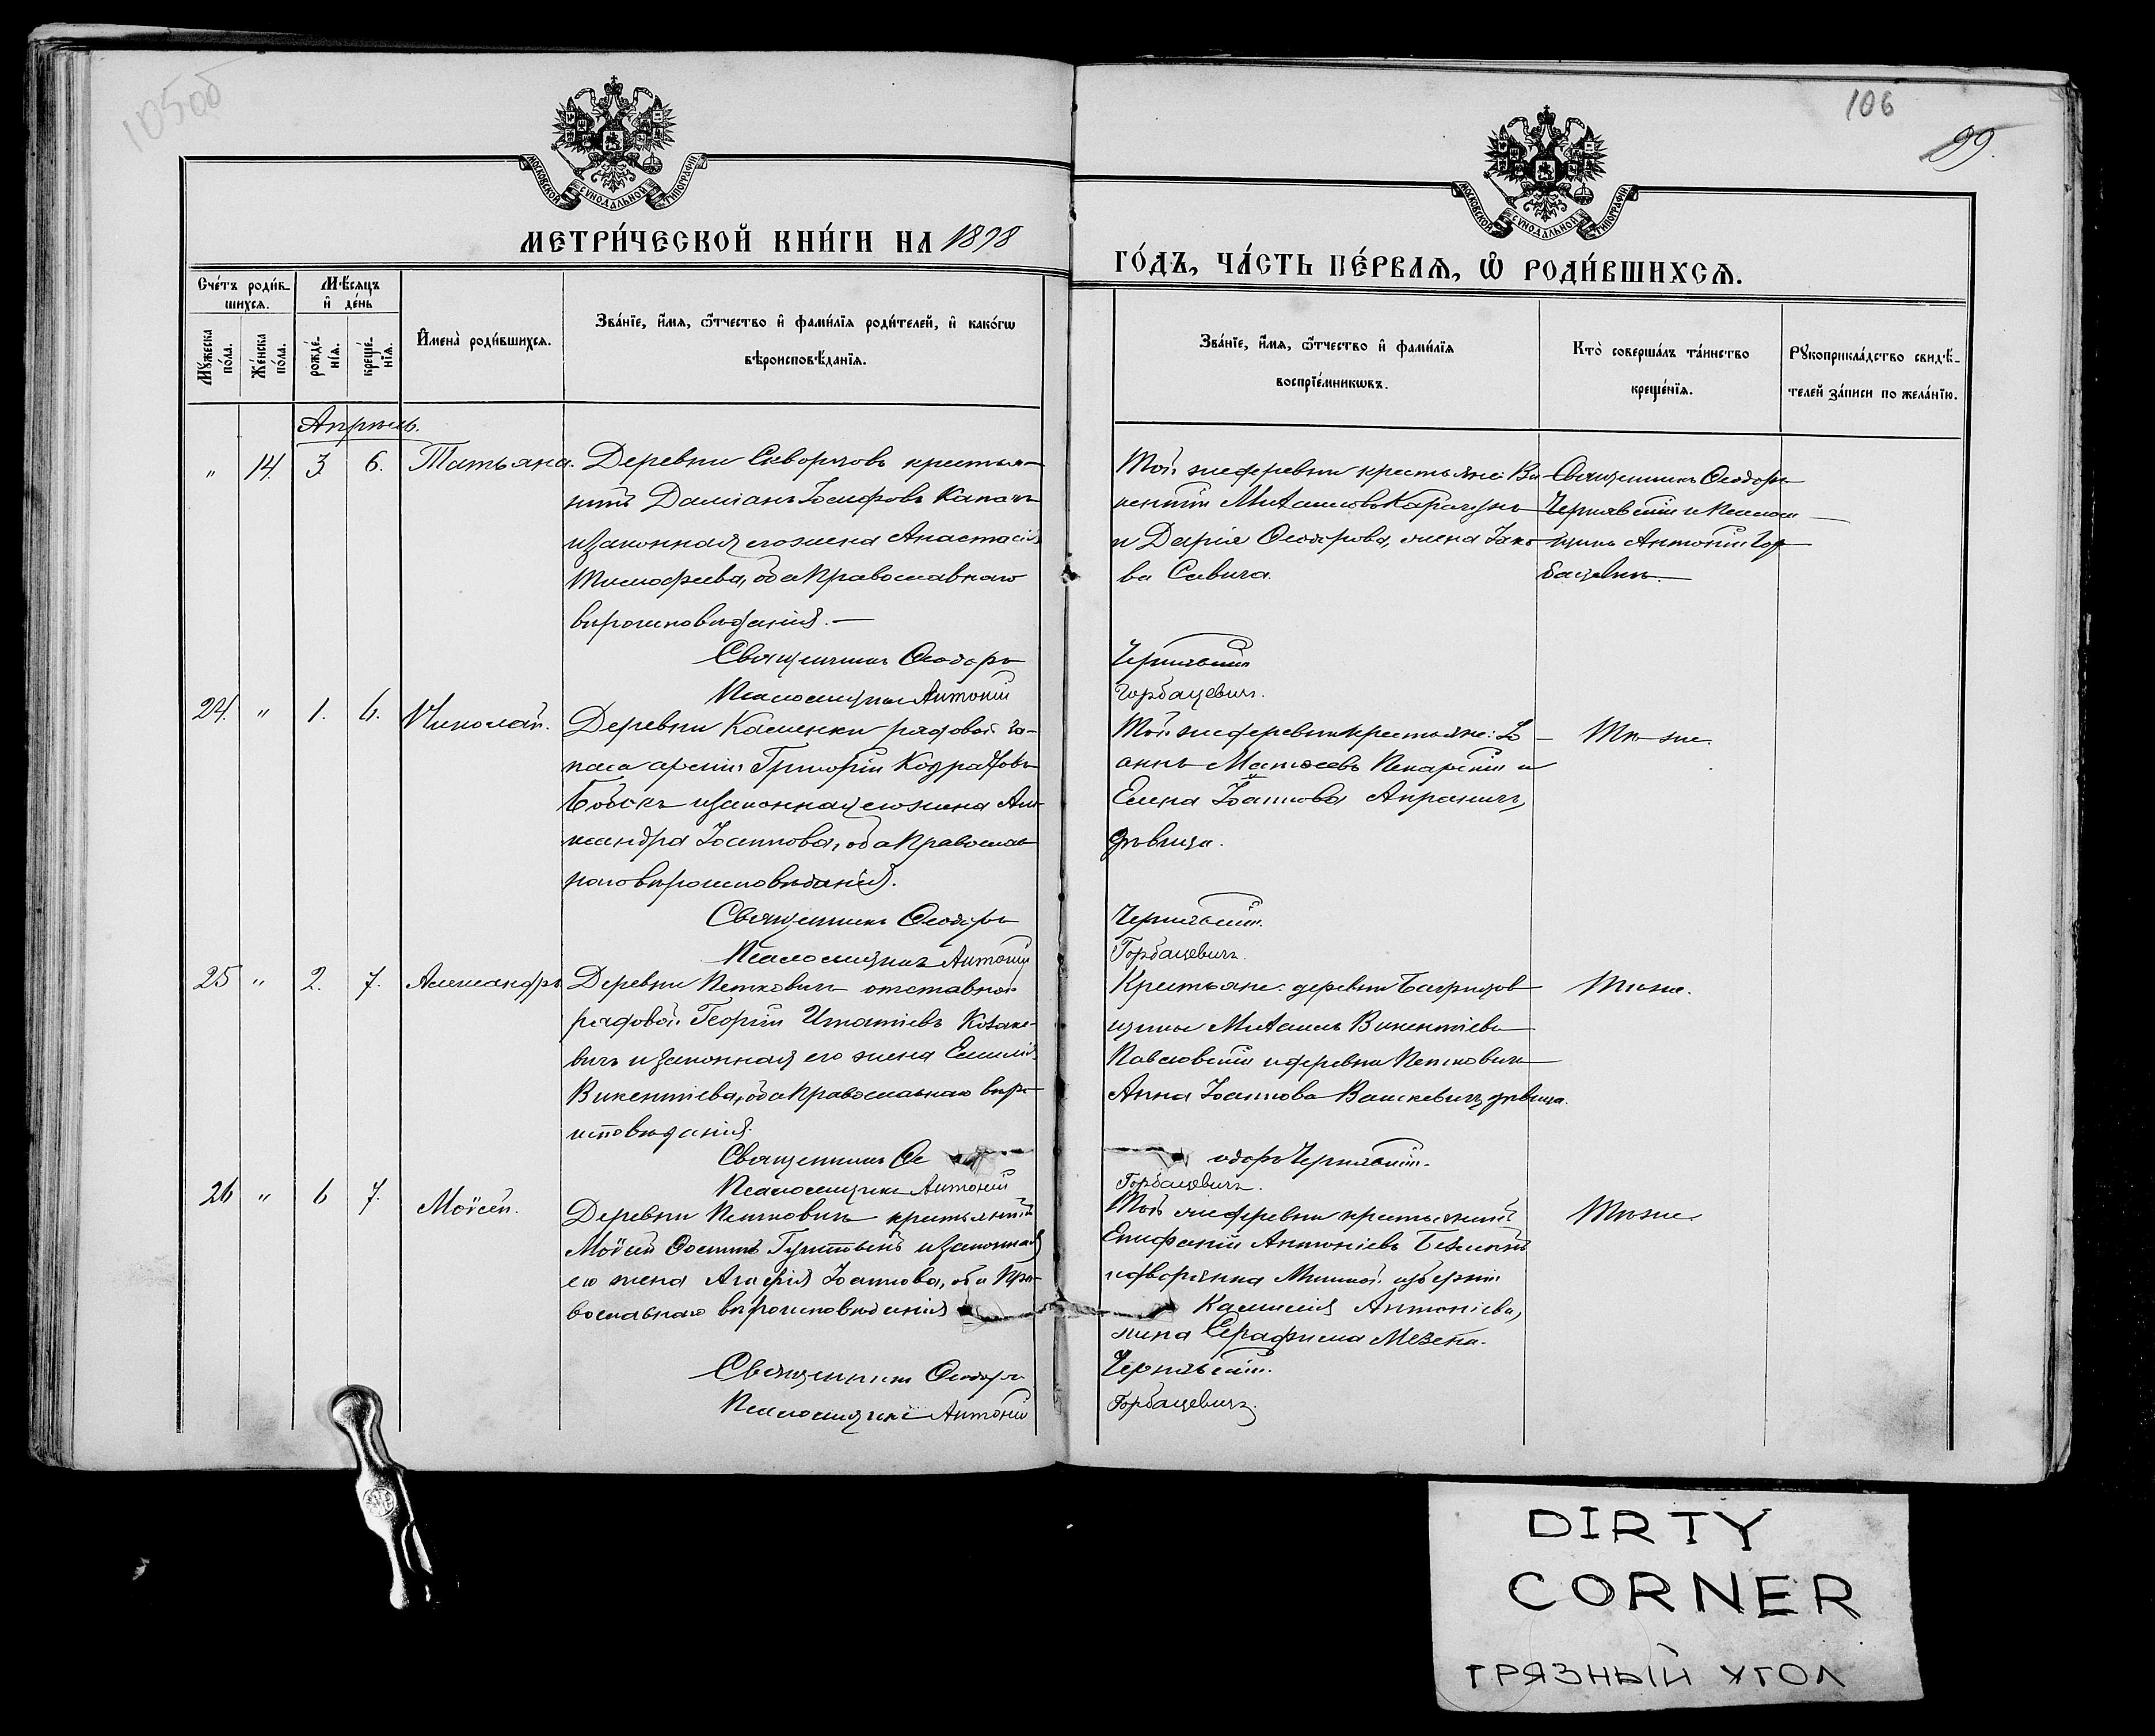 106
99.
МОСКОВСКОЙ СУНОДАЛЬНОЙ ТИПОГРАФІИ
МОСКОВСКОЙ СУНОДАЛЬНОЙ ТИПОГРАФІИ
МЕТРИ́ЧЕСКОЙ КНИ́ГИ НА 1898
ГО́ДЪ, ЧА́СТЬ ПЕ́РВАѦ, Ѡ РОДИ́ВШИХСѦ.
Сче́тъ роди́в-
шихсѧ.
Мѣ́сяцъ
и҆ де́нь
Мꙋ́жеска
по́ла.
Же́нска
по́ла.
рожде́-
нїѧ.
креще́-
нїѧ.
И҆мена̀ роди́вшихсѧ.
Зва́нїе, и҆́мѧ, ѻ҆́тчество и҆ фами́лїѧ роди́телей, и҆ како́гѡ
вѣроисповѣ́данїѧ.
Зва́нїе, и҆́мѧ, ѻ҆́тчество и҆ фами́лїѧ
воспрїе́мникѡвъ.
Кто̀ соверша́лъ та́инство
креще́нїѧ.
Рꙋкоприкла́дство свидѣ́-
телей за́писи по жела́нїю.
Апрѣль.
" 14. 3 6. Татьяна.
Деревни Скворчовъ крестья-
нинъ Даміанъ Іосифовъ
и законная его жена Анастасія
Тимофеева, оба Православнаго
вѣроисповѣданія.
Священникъ Ѳеодоръ
Псаломщикъ Антоній
Той же деревни крестьяне: Ви-
кентій Михаиловъ
и Дарія Ѳеодорова, жена Іако-
ва Савича.
Чернявскій
Горбацевичъ.
Священникъ Ѳеодоръ
Чернявскій и Псалом-
щикъ Антоній Гор-
бацевичъ.
24. " 1. 6. Николай.
Деревни Каменки рядовой за-
паса арміи Григорій
и законная его жена Але-
ксандра Іоаннова, оба Православ-
наго вѣроисповѣданія.
Священникъ Ѳеодоръ
Псаломщикъ Антоній
Той же деревни крестьяне: Іо-
аннъ Матѳеевъ Пекарскій и
Елена Іоаннова
дѣвица.
Чернявскій.
Горбацевичъ.
Тѣ же.
25 " 2. 7. Александръ
Деревни Петковичъ отставной
рядовой Георгій Игнатіевъ Козаке-
вичъ и законная его жена Емилія
Викентіева, оба Православнаго вѣро-
исповѣданія.
Священникъ Ѳе
Псаломщикъ Антоній
Крестьяне: деревни
Михаилъ Викентіевъ
Павловскій и деревни Петковичъ
Анна Іоаннова Вашкевичъ, дѣвица.
одоръ Чернявскій.
Горбацевичъ.
Тѣ же.
26 " 6 7. Моѵсей.
Деревни Петковичъ крестьянинъ
Моѵсей
его жена Агафія Іоаннова, оба Пра-
вославнаго вѣроисповѣданія
Священникъ Ѳеодоръ
Псаломщикъ Антоній
Той же деревни крестьянинъ
Епифаній Антоніевъ
и дворянка Минской губерніи
Камилія Антоніева,
жена Серафима
Чернявскій.
Горбацевичъ.
Тѣ же
DIRTY
CORNER
ГРЯЗНЫЙ УГОЛ